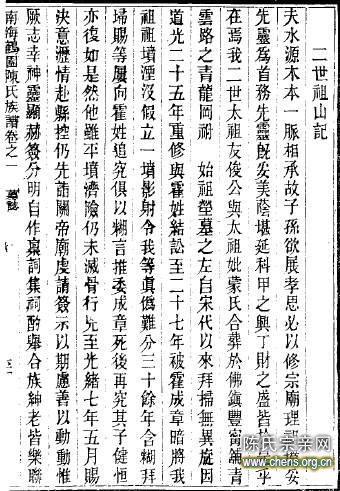 二世祖山記
夫水源木本一脈相承故子孫欲展孝思必以修宗廟理墳墓安
先靈爲首務先靈旣安美蔭堪延科甲之興丁財之盛皆於是乎
在焉我二世太祖友俊公與太祖妣蒙氏合葬於佛鎮豐崗舖青
雲路之青龍岡祔 始祖塋墓之左自宋代以來拜掃無異旋因
道光二十五年重修與霍姓結訟至二十七年被霍成章暗將我
祖祖墳湮沒假立一墳影射令我等眞僞難分三十餘年含糊拜
掃賜等屢向霍姓追究俱以糊言推委成章死後再究其子健恒
亦復如是然他雖平墳濟險仍未滅骨行兇至光緒七年五月賜
決意瀝情赴縣控仍先詣關帝廟虔請簽示以期慮善以動動惟
厥志幸神靈顯赫簽分明自作稟詞集祠酌舉合族紳老皆樂聯
南海鶴園陳氏族譜卷之一 墓誌
陈氏宗亲网
www.chens.org.cn